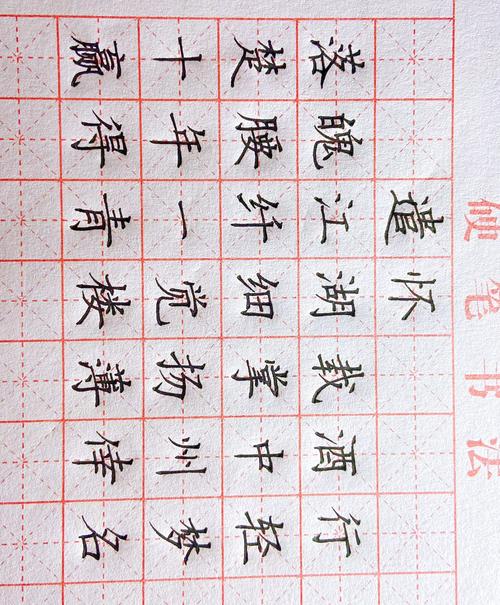 硬笔书法
遣怀
落魄江湖载酒行
楚腰纤细掌中轻
十年一觉扬州梦
赢得青楼薄倖名